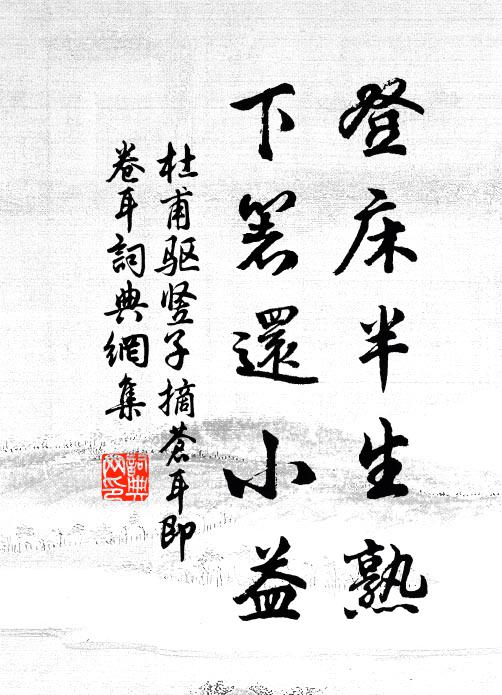 登床半生熟
下箸還小益
杜甫驱竖子摘蒼耳即
卷耳詞典網集
詞典网印